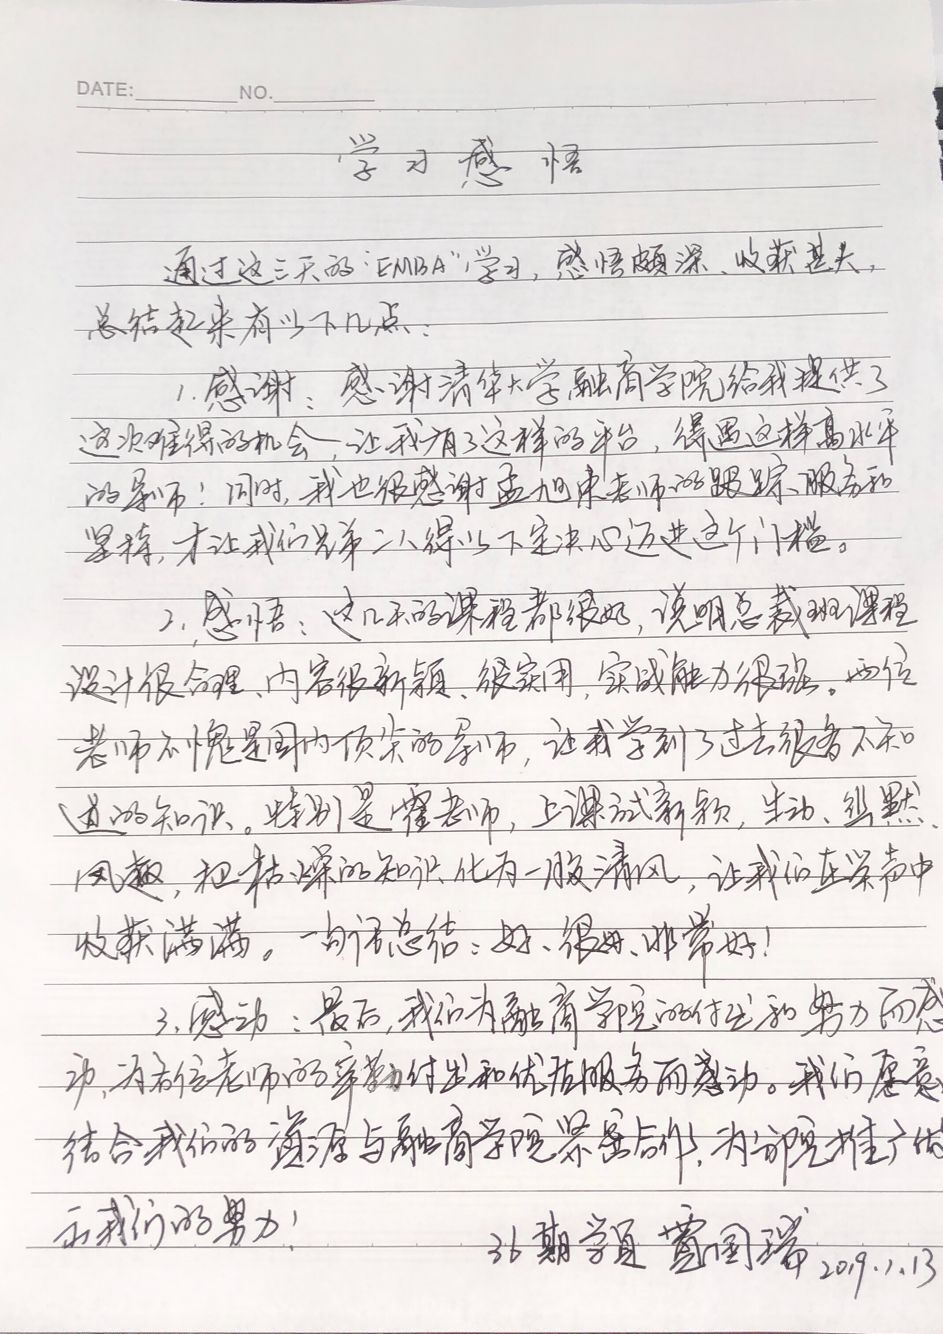 DATE: NO.
学习感悟
通过这三天的"EMBA"学习,感悟颇深、收获甚大,
总结起来有以下几点:
1.感谢:感谢清华大学融商学院给我提供了
这次难得的机会,让我有了这样的平台,得遇这样高水平
的导师!同时,我也很感谢孟旭东老师的跟踪、服务和
坚持,才让我们兄弟二人得以下定决心迈进这个门槛。
2.感悟:这几天的课程都很好,说明总裁班课程
设计很合理、内容很新颖、很实用,实战能力很强。两位
老师不愧是国内顶尖的导师,让我学到了过去很多不知
道的知识。特别是霍老师,上课形式新颖,生动、幽默、
风趣,把枯燥的知识化为一股清风,让我们在笑声中
收获满满。一句话总结:好、很好、非常好!
3.感动:最后,我们为融商学院的付出和努力而感
动,为各位老师的辛勤付出和优质服务而感动。我们愿意
结合我们的资源与融商学院紧密合作,为学院推广做
出我们的努力!
36期学员 贾国瑞 2019.1.13